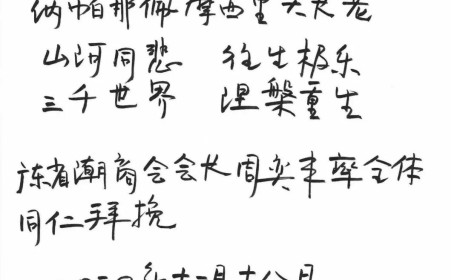 纳帕那佩摩西里大长老
山河同悲 往生极乐
三千世界 涅槃重生
广东省潮商会会长周奕丰率全体
同仁拜挽